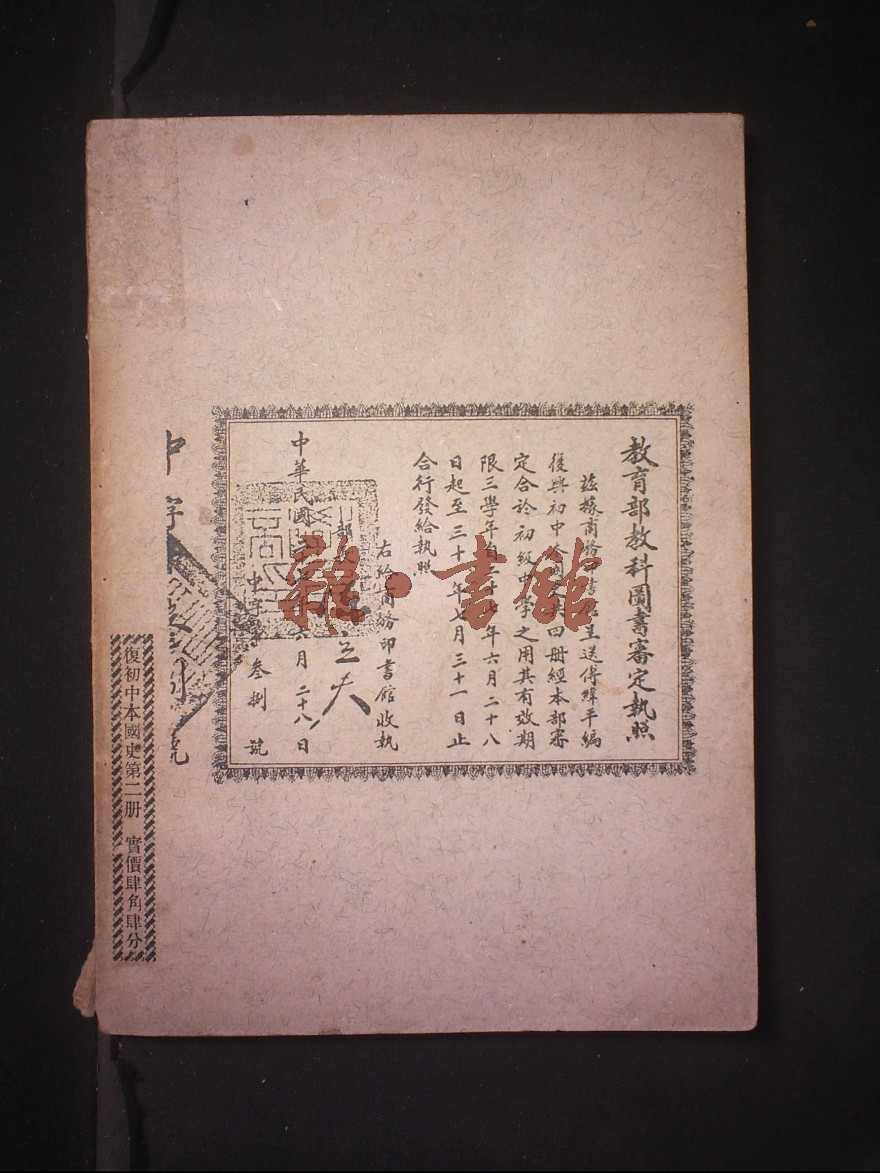 教育部教科圖書審定執照
茲據商務印書館呈送傅緯平編
復興初中本國史四册經本部審
定合於初級中學之用其有效期
限三學年自二十 年六月二十八
日起至三十 年七月三十一日止
合行發給執照
右給商務印書館收執
部 立夫
中華民國 六月二十八日
中字第叁捌號
中字 號
復初中本國史第二册 實價肆角肆分
雜·書館